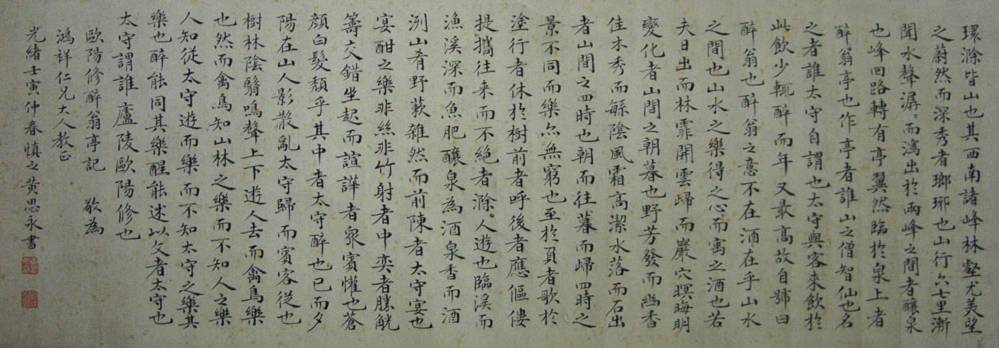 環滁皆山也其西南諸峰林壑尤美望
之蔚然而深秀者瑯琊也山行六七里漸
聞水聲潺。而瀉出於兩峰之間者釀泉
也峰回路轉有亭翼然臨於泉上者
醉翁亭也作亭者誰山之僧智仙也名
之者誰太守自謂也太守與客來飲於
此飲少輒醉而年又最高故自號曰
醉翁也醉翁之意不在酒在乎山水
之間也山水之樂得之心而寓之酒也若
夫日出而林霏開雲歸而巖穴暝晦明
變化者山間之朝暮也野芳發而幽香
佳木秀而陰風霜高潔水落而石出
者山間之四時也朝而往暮而歸四時之
景不同而樂亦無窮也至於負者歌於
塗行者休於樹前者呼後者應傴僂
提攜往來而不絕者滁。人遊也臨溪而
漁溪深而魚肥釀泉為酒泉香而酒
洌山肴野蔌雜然而前陳者太守宴也
宴酣之樂非絲非竹射者中奕者勝觥
籌交錯坐起而諠譁者眾賓懽也蒼
顏白髮頹乎其中者太守醉也已而夕
陽在山人影散亂太守歸而賓客從也
樹林陰翳鳴聲上下遊人去而禽鳥樂
也然而禽鳥知山林之樂而不知人之樂
人知從太守遊而樂而不知太守之樂其
樂也醉能同其樂醒能述以文者太守也
太守謂誰廬陵歐陽修也
歐陽修醉翁亭記 敬為
鴻祥仁兄大人教正
光緒壬寅仲春慎之黃思永書